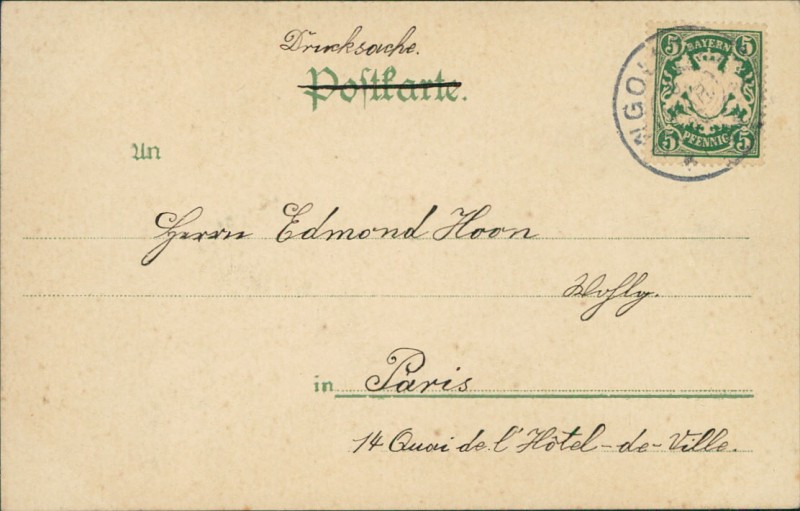 Drucksache.
Postkarte.
5 BAYERN 5
5 PFENNIG 5
An
Herrn Edmond Hoon
Wohlg.
in Paris
14 Quai de l'Hôtel-de-Ville.